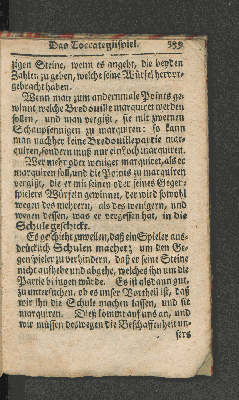 Das Toccategliſpiel. 399
zigen Steine, wenn es angeht, die beyden
Zahlen zu geben, welche ſeine Würfel hervor-
gebracht haben.
Wenn man zum andernmale Points ge-
winnt welche Bredouille marquiret werden
ſollen, und man vergißt, ſie mit zweenen
Schaupfennigen zu marquiren: ſo kann
man nachher keine Bredouillepartie mar-
quiren, ſondern muß nur einfach marquiren.
Wer mehr oder weniger marquiret, als er
marquiren ſoll, und die Points zu marquiren
vergißt, die er mit ſeinen oder ſeines Gegen-
ſpielers Würfeln gewinnet, der wird ſowohl
wegen des mehrern, als des wenigern, und
wegen deſſen, was er vergeſſen hat, in die
Schule geſchickt.
Es geſchieht zuweilen, daß ein Spieler aus-
drücklich Schulen machet, um den Ge-
genſpieler zu verhindern, daß er ſeine Steine
nicht aufhebe und abgehe, welches ihn um die
Partie bringen würde. Es iſt alsdann gut,
zu unterſuchen, ob es unſer Vortheil iſt, daß
wir ihn die Schule machen laſſen, und ſie
marquiren. Dieß kommt auf an, und
wir müſſen deswegen die Beſchaffenheit un-
ſers